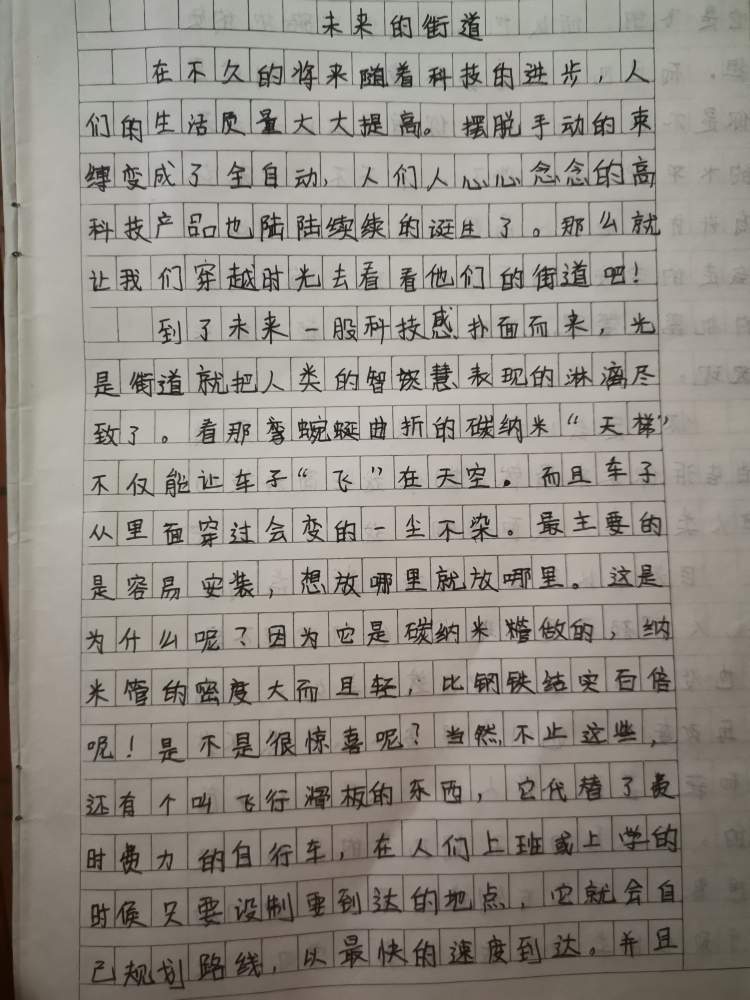 未来的街道
在不久的将来随着科技的进步，人
们的生活质量大大提高。摆脱手动的束
缚变成了全自动，人们人心心念念的高
科技产品也陆陆续续的诞生了。那么就
让我们穿越时光去看看他们的街道吧！
到了未来一股科技感扑面而来，光
是街道就把人类的智慧表现的淋漓尽
致了。看那弯蜿蜒曲折的碳纳米“天梯”
不仅能让车子“飞”在天空。而且车子
从里面穿过会变的一尘不染。最主要的
是容易安装，想放哪里就放哪里。这是
为什么呢？因为它是碳纳米管做的，纳
米管的密度大而且轻，比钢铁结实百倍
呢！是不是很惊喜呢？当然不止这些，
还有个叫飞行滑板的东西，它代替了费
时费力的自行车，在人们上班或上学的
时候只要设制要到达的地点，它就会自
己规划路线，以最快的速度到达。并且